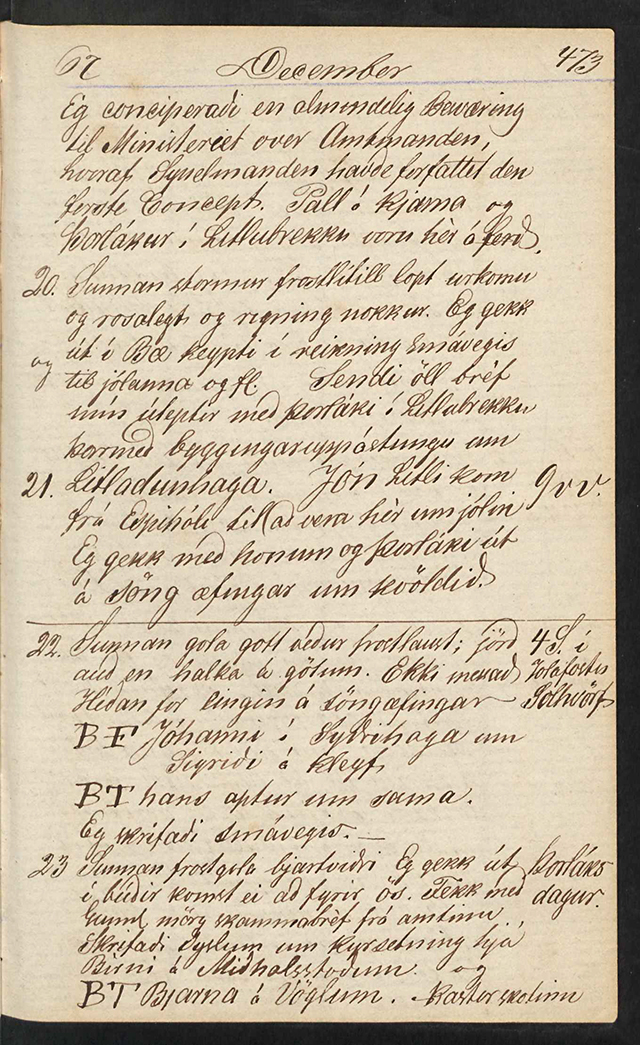 67 December 473
Eg conciperaði en almindelig Bewæring
til Ministeriet over Amtmanden,
hvoraf Sysselmanden havde forfattet den
förste Concept. Pall á Kjarna og
Þorlákur í Litlubrekku voru hèr á ferd.
20. Sunnan stormur frostlitill lopt urkomu
og rosalegt og rigning nokkur. Eg gekk
út í Bæ keypti í reikning smávegis
og til jólanna og fl. Sendi öll bréf
mín úteptir med Þorláki í Litlubrekku
þarmed byggingaruppástungu um
21. Litladunhaga. Jón Litli kom 9vv.
frá Espihóli til ad vera hèr um jólin
Eg gekk med honum og Þorláki út
á söng æfingar um kvöldid.
22. Sunnan gola gott vedur frostlaust; jörd 4 S. í
aud en halka á götum. Ekki messad Jolaföstu
Hedan for eingin á söngæfingar Sólhvörf
BF Jóhanni í Sydrihaga um
Sigridi á Kleyf
BT hans aptur um sama.
Eg skrifadi smávegis. —
23 Sunnan frostgola bjartvidri Eg gekk út Þorláks
í búdir komst ei ad fyrir ös. Fekk med dagur.
Guml. mörg skammabréf frá amtinu.
Skrifadi Syslum um kyrsetning hjá
Birni á Midhalsstodum. og
BT Bjarna á Vöglum.